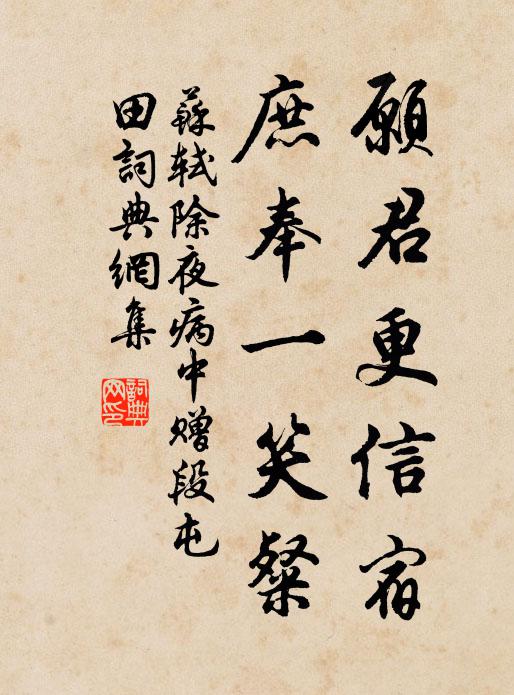 願君更信宿
庶奉一笑粲
蘇軾除夜病中贈段屯
田詞典網集
詞典
网印